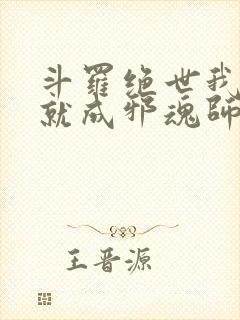 斗羅絶世我
就成邪魂師
王晋源